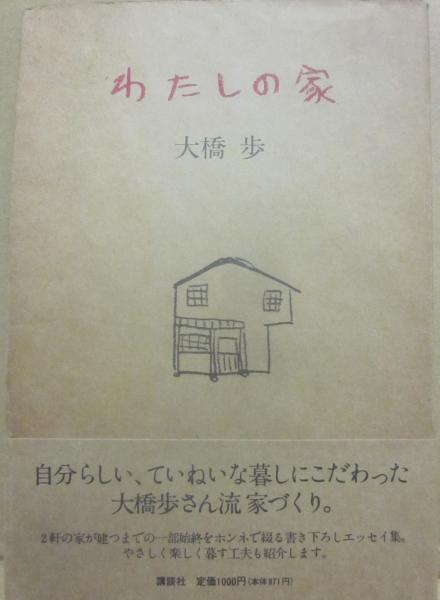 わたしの家
大橋 歩
自分らしい、ていねいな暮しにこだわった
大橋歩さん流 家づくり。
2軒の家が建つまでの一部始終をホンネで綴る書き下ろしエッセイ集。
やさしく楽しく暮す工夫も紹介します。
講談社 定価1000円(本体971円)